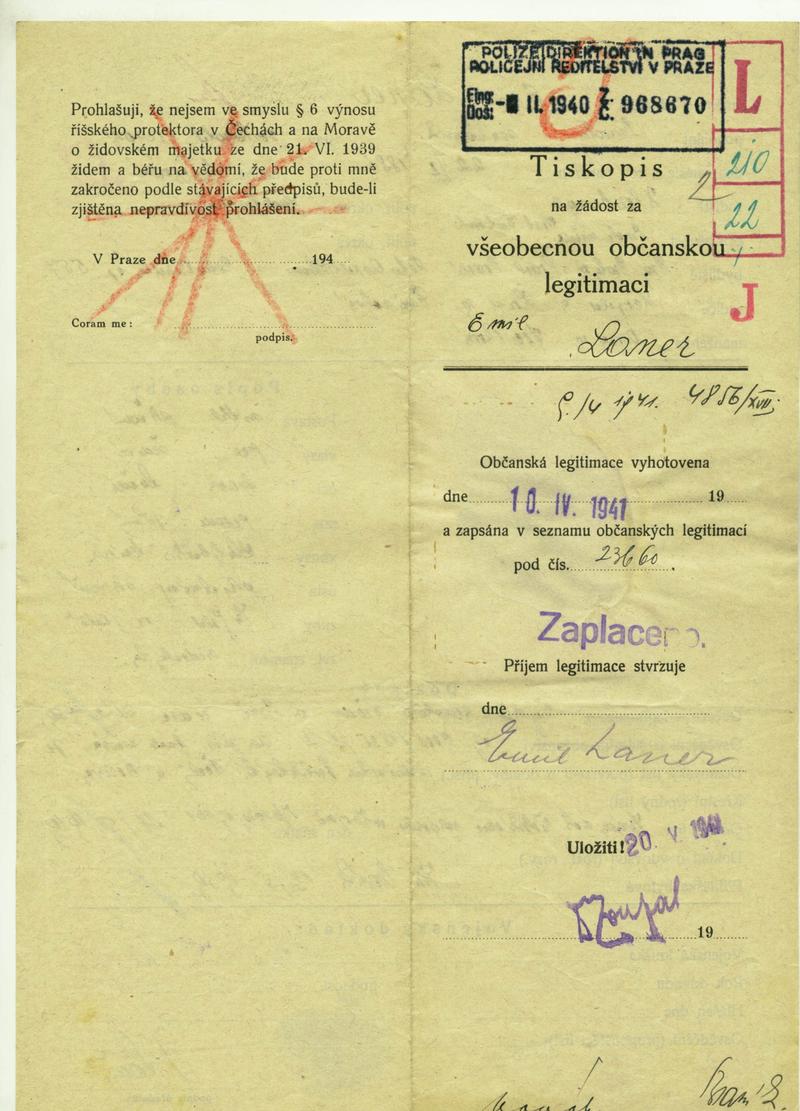 Prohlašuji, že nejsem ve smyslu § 6 výnosu
říšského protektora v Čechách a na Moravě
o židovském majetku ze dne 21. VI. 1939
židem a béřu na vědomí, že bude proti mně
zakročeno podle stávajících předpisů, bude-li
zjištěna nepravdivost prohlášení.
V Praze dne 194
Coram me:
podpis.
POLIZEIDIREKTION IN PRAG
POLICEJNÍ ŘEDITELSTVÍ V PRAZE
Eing.
Doš. II. 1940 Z. Č. 968670
L
210
22
J
Tiskopis
na žádost za
všeobecnou občanskou
legitimaci
Emil
Laner
4856/XVII
Občanská legitimace vyhotovena
dne 10. IV. 1941 19
a zapsána v seznamu občanských legitimací
pod čís. 23660.
Zaplaceno.
Příjem legitimace stvrzuje
dne
Emil Laner
Uložiti! 20. V 1941
19